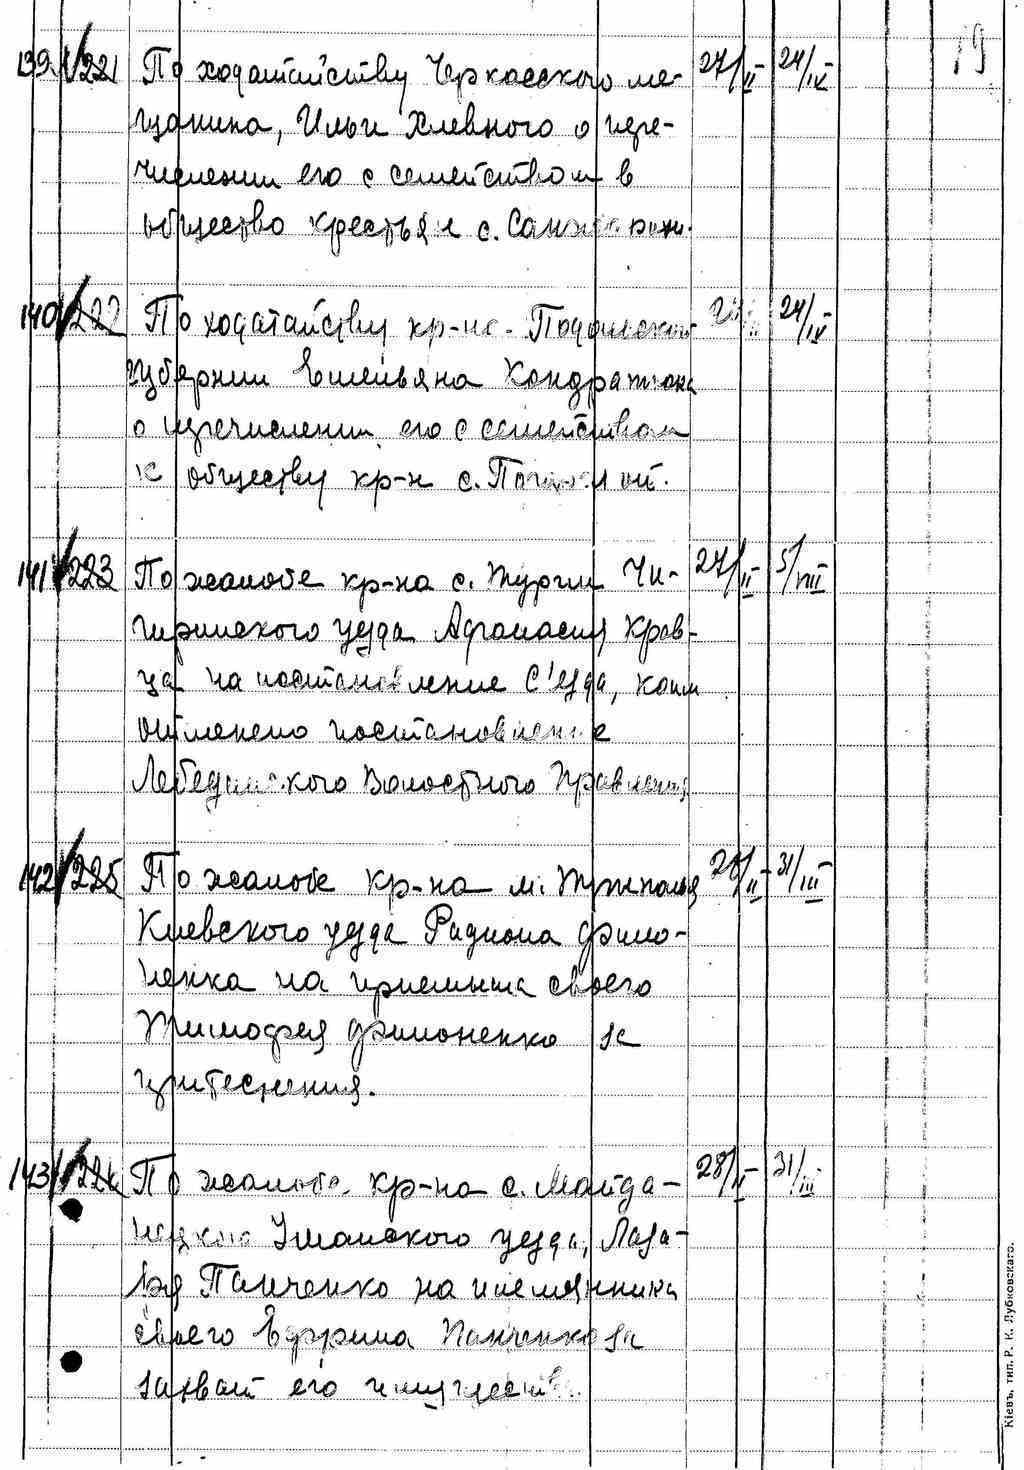 19
139 221 По ходатайству Черкасского ме- 27/II 24/IV
щанина, Ильи Хлевного о пере-
числении его с семейством в
общество крестьян с.
140 222 По ходатайству кр-на Подольской 24/IV
губернии Емельяна Кондратюка
о перечислении его с семейством
к обществу кр-н с.
141 223 По жалобе кр-на с. Турии Чи- 27/II 5/VIII
гиринского уезда Афанасия Крав-
ца на постановление С'езда, коим
отменено постановление
Лебединского Волостного Правления
142 225 По жалобе кр-на м. 28/II 31/III
Киевского уезда Радиона ФилО-
ненка на приемыша своего
Тимофея Филоненко за
притеснения.
143 226 По жалобе кр-на с. Майда- 28/II 31/III
нецкого Уманского уезда, Лаза-
ря Панченко на племянника
своего Ефрима Панченко за
захват его имущества.
Кіевъ, тип. Р. К. Лубковскаго.